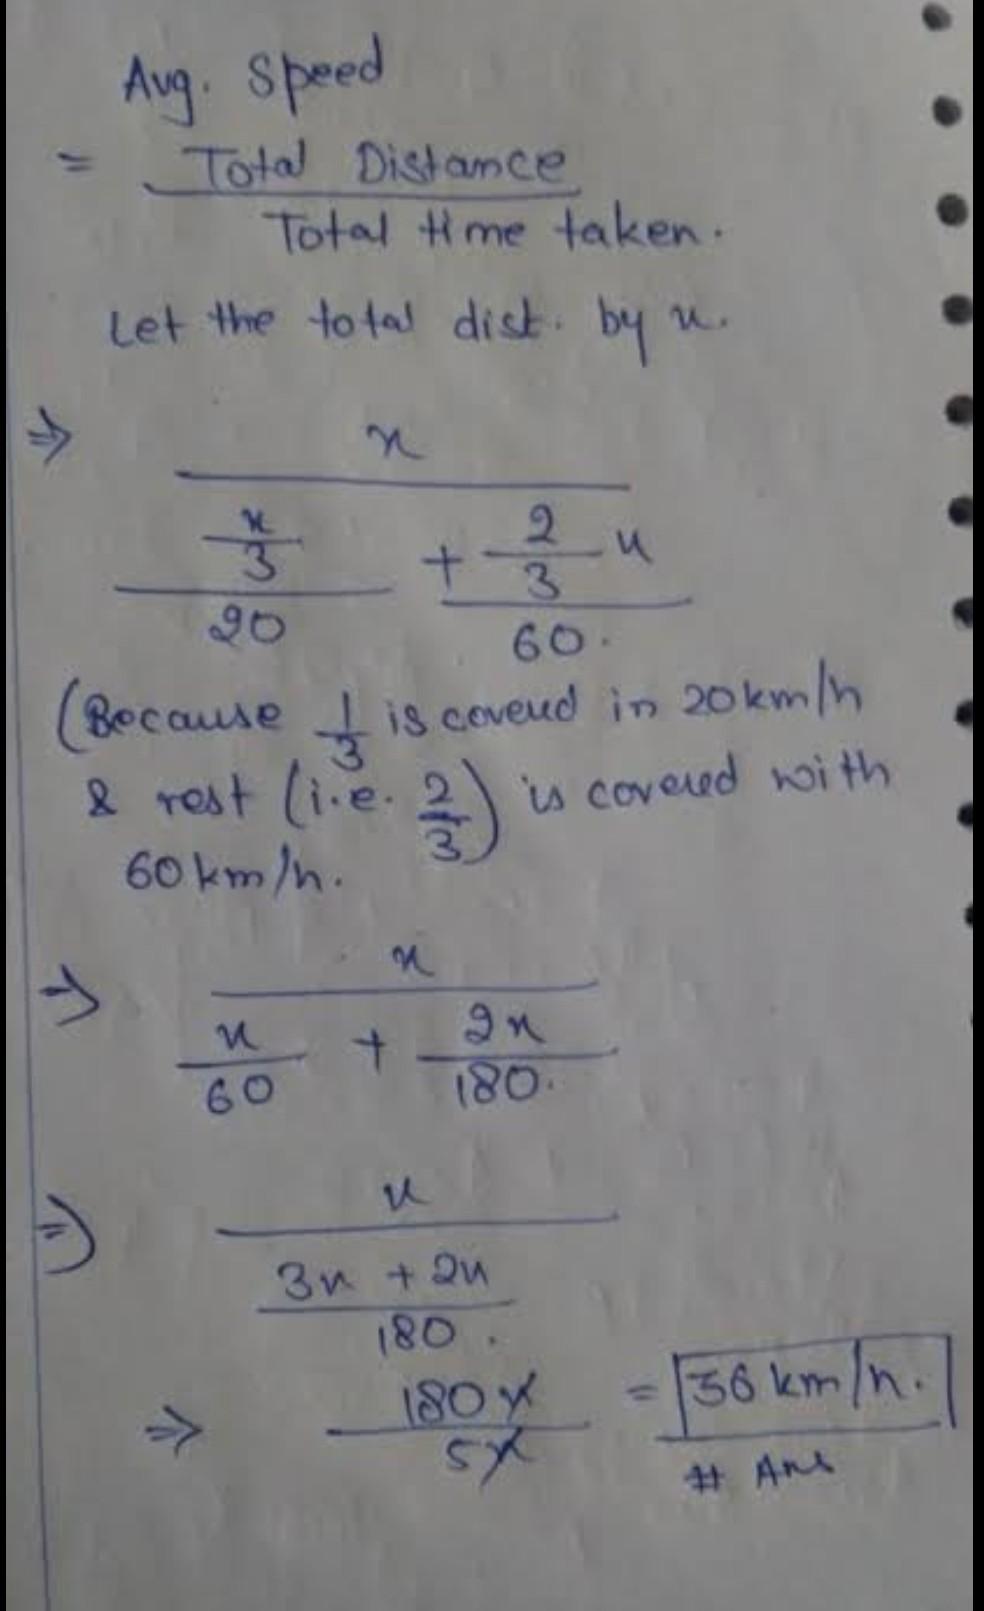 Avg. Speed
= Total Distance
Total time taken.
Let the total dist. by x.
⇒ x
x/3 + 2/3 x
20 60.
(Because 1/3 is covered in 20km/h
& rest (i.e. 2/3) is covered with
60km/h.
⇒ x
x/60 + 2x/180.
⇒ x
3x + 2x
180.
⇒ 180x/5x = 36 km/h.
# Ans